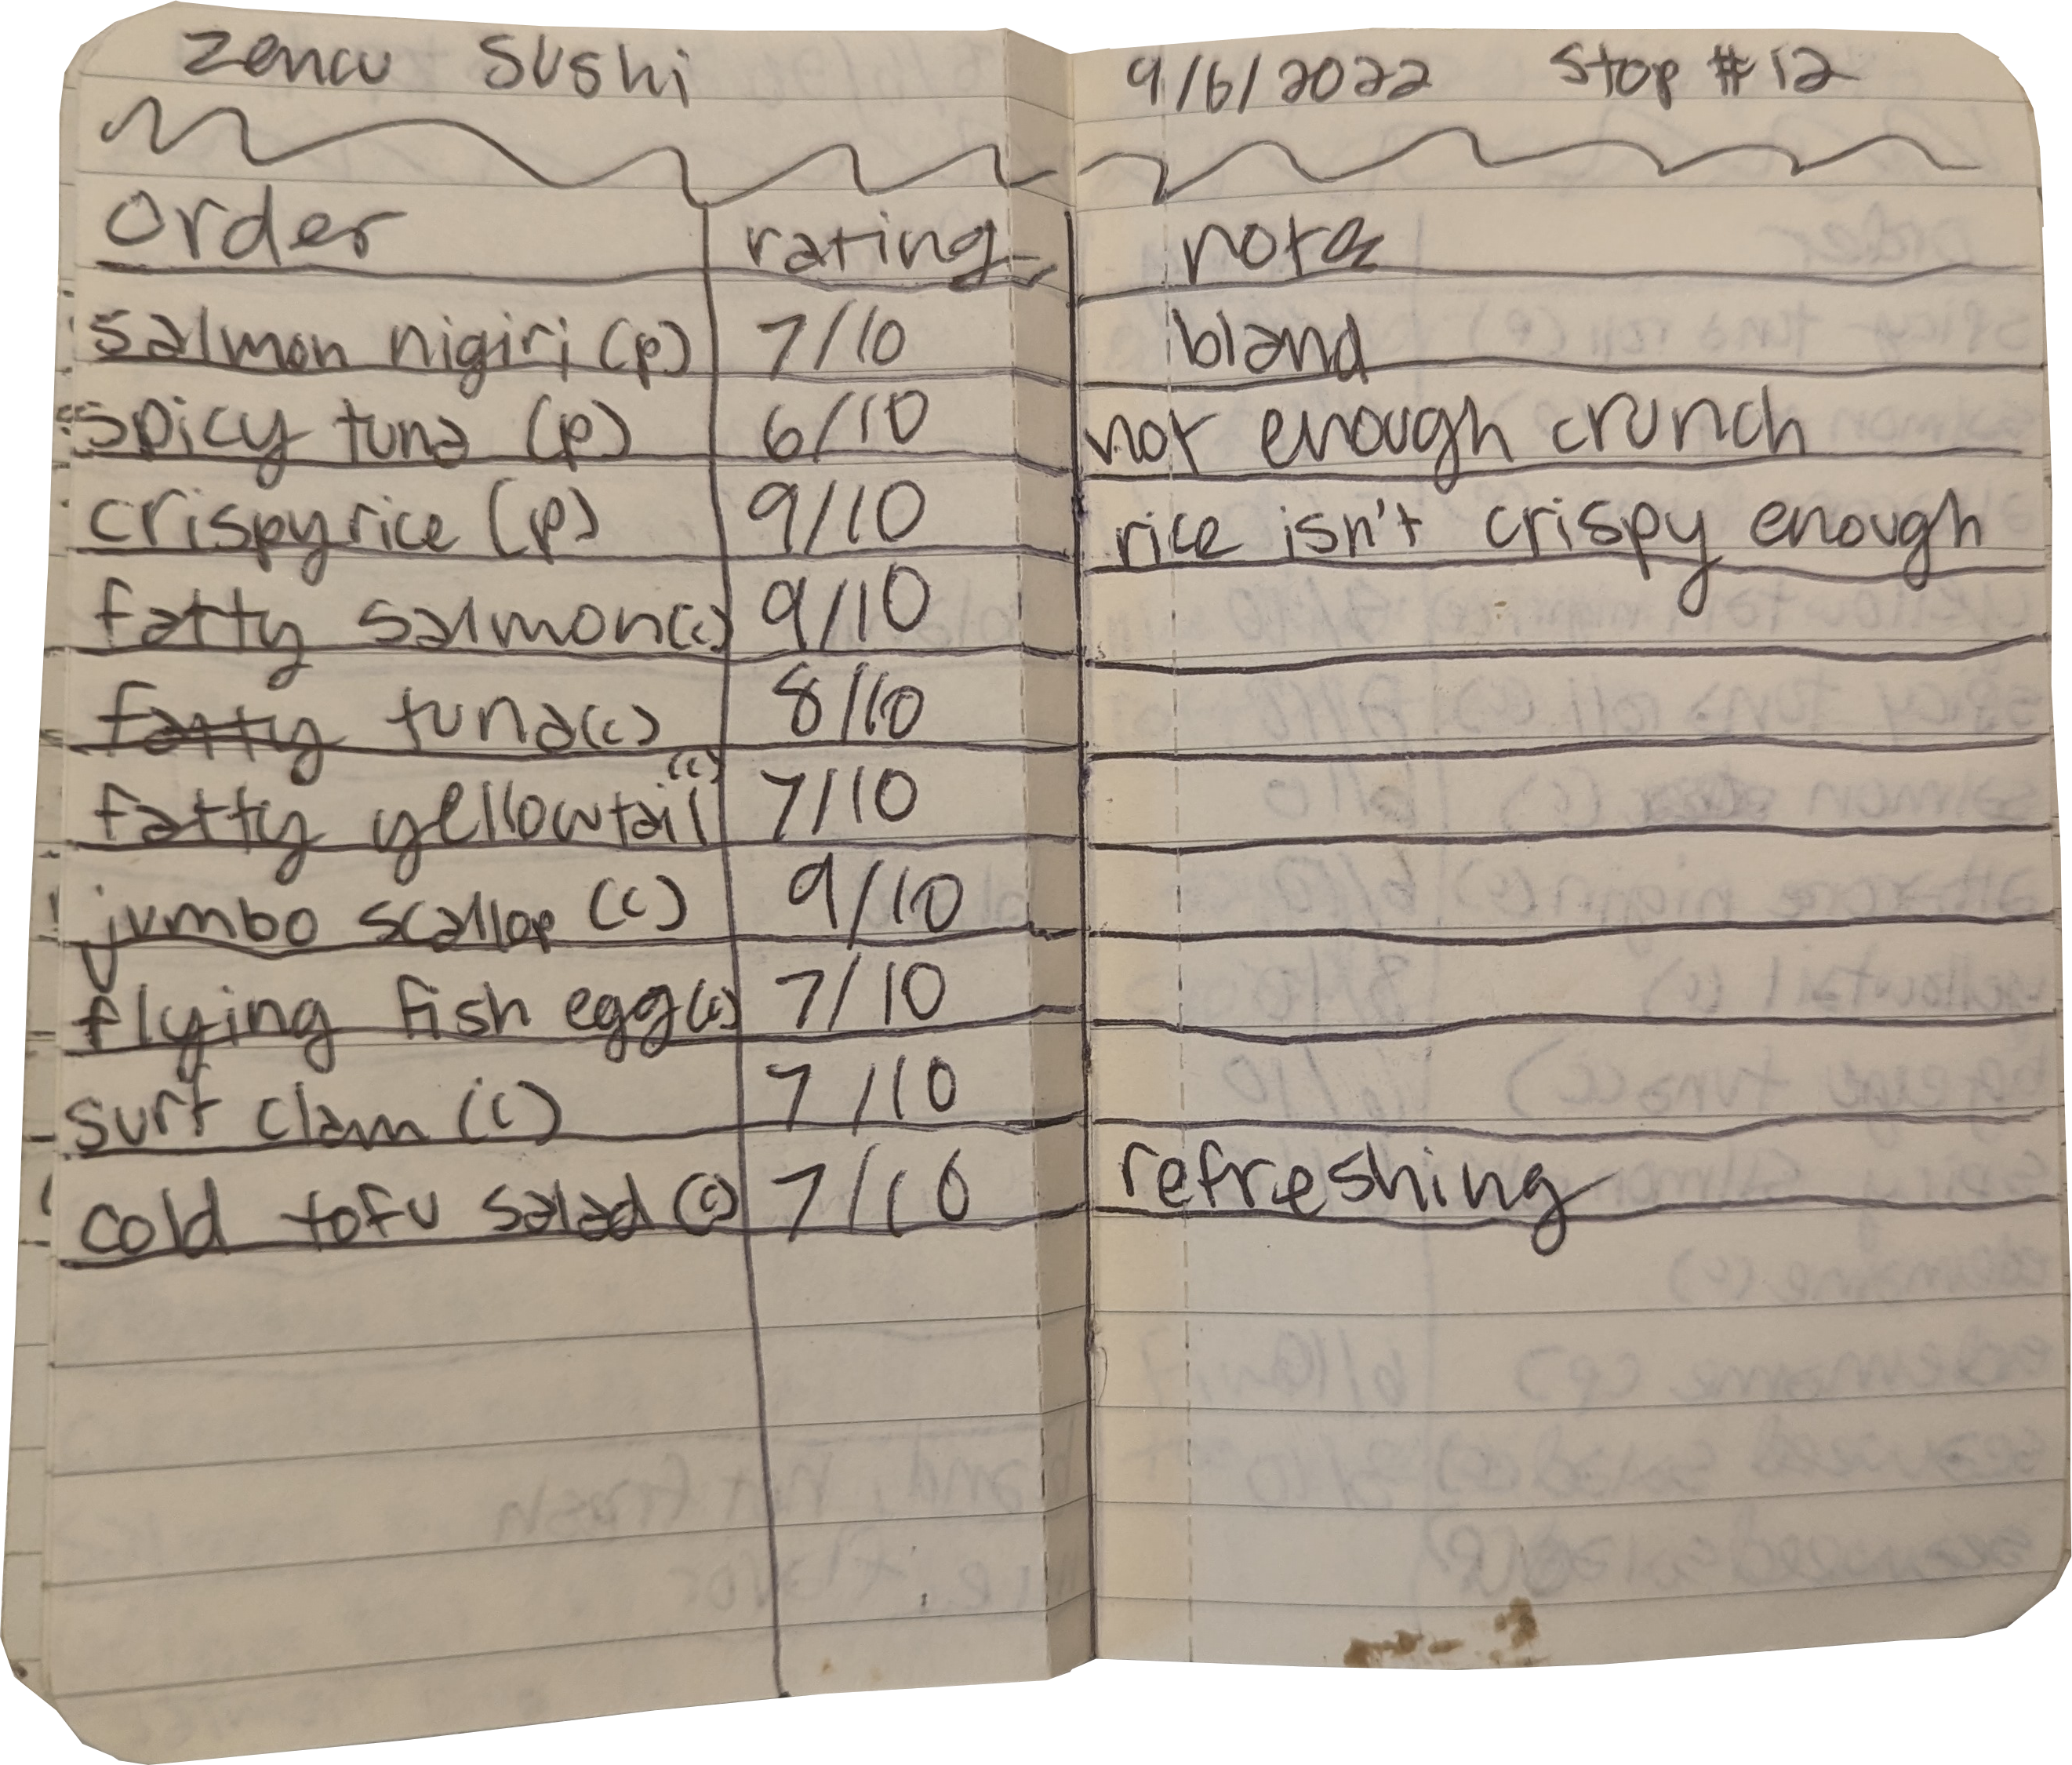 zencu sushi 9/6/2022 stop #12
order rating note
salmon nigiri (p) 7/10 bland
spicy tuna (p) 6/10 not enough crunch
crispy rice (p) 9/10 rice isn't crispy enough
fatty salmon (c) 9/10
fatty tuna (c) 8/10
fatty yellowtail (c) 7/10
jumbo scallop (c) 9/10
flying fish egg (c) 7/10
surf clam (c) 7/10
cold tofu salad (c) 7/10 refreshing